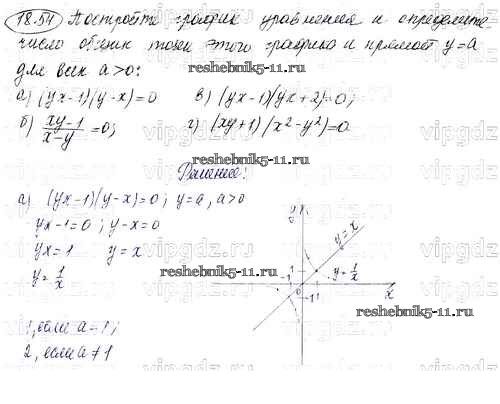 18.54 Постройте график уравнения и определите
число общих точек этого графика и прямой y=a
для всех a>0:
reshebnik5-11.ru
а) (yx-1)(y-x)=0 в) (yx-1)(yx+2)=0;
б) xy-1/x-y=0; г) (xy+1)(x²-y²)=0
reshebnik5-11.ru
Решение:
а) (yx-1)(y-x)=0; y=a, a>0
yx-1=0; y-x=0
yx=1 y=x
y=1/x
y
y=x
1
-1
0
-1 1
y=1/x
x
reshebnik5-11.ru
1, если a=1;
2, если a≠1
reshebnik5-11.ru
vipgdz.ru